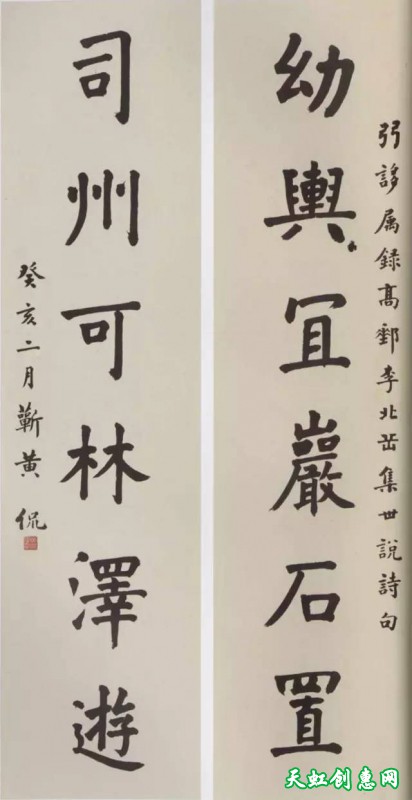 弜誃属録高郵李北岳集世說詩句
幼輿冝巖石置
司州可林澤遊
癸亥二月蘄黃侃
天虹创惠网